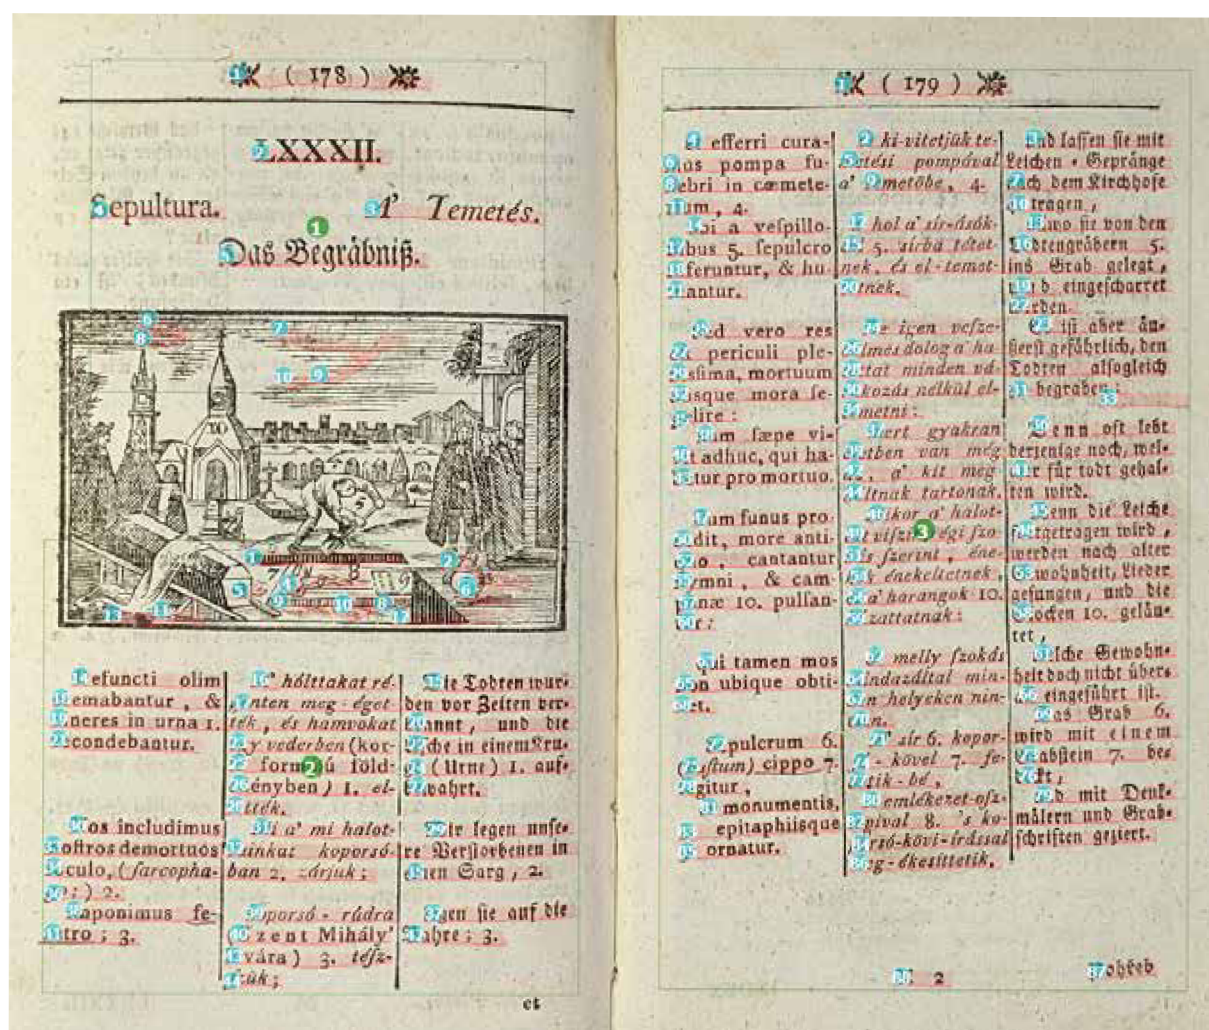 ( 178 )
LXXXII.
Sepultura.
A' Temetés.
Das Begräbniß.
Defuncti olim
cremabantur, &
cineres in urna 1.
recondebantur.
Nos includimus
noſtros demortuos
loculo, (ſarcopha-
2.
imponimus fe-
retro ; 3.
A' hólttakat ré-
genten meg-éget-
ték, és hamvokat
egy vederben (kor-
só formájú föld-
edényben) 1. el-
tették.
Mi a' mi halot-
tainkat koporsó-
ban 2. zárjuk ;
koporsó-rúdra
(Szent Mihály'
lovára) 3. téſz-
ſzük ;
Die Todten wur-
den vor Zeiten ver-
brannt, und die
Asche in einem Kru-
ge (Urne) 1. auf-
bewahrt.
Wir legen unſe-
re Verſtorbenen in
einen Sarg, 2.
legen ſie auf die
Bahre ; 3.
et
( 179 )
& efferri cura-
mus pompa fu-
nebri in cœmete-
rium, 4.
ubi a veſpillo-
nibus 5. ſepulcro
inferuntur, & hu-
mantur.
Sed vero res
eſt periculi ple-
niſſima, mortuum
absque mora ſe-
pelire :
Nam ſæpe vi-
vit adhuc, qui ha-
betur pro mortuo.
Cum funus pro-
dit, more anti-
quo, cantantur
hymni, & cam-
panæ 10. pulſan-
tur :
qui tamen mos
non ubique obti-
net.
Sepulcrum 6.
cippo 7.
tegitur,
monumentis,
epitaphiisque
ornatur.
ki-vitetjük te-
metési pompával
a' temetőbe, 4.
hol a' sír-ásók-
tól 5. sírba tétet-
nek, és el-temet-
tetnek.
De igen veſze-
delmes dolog a' ha-
lottat minden vá-
rakozás nélkül el-
temetni :
Mert gyakran
életben van még
az, a' kit meg
hóltnak tartonak.
Mikor a' halot-
tat viſzik, régi ſzo-
kás ſzerint, éne-
kek énekeltetnek,
's a' harangok 10.
melly ſzokás
mindazáltal min-
den helyeken nin-
csen.
A' sír 6. kopor-
só-kövel 7. fe-
detik-bé,
's emlékezet-oſz-
lopival 8. 's ko-
porsó-kövi-írással
meg-ékesíttetik.
und laſſen ſie mit
Leichen-Gepränge
nach dem Kirchhofe
4. tragen,
wo ſie von den
Todtengräbern 5.
ins Grab gelegt,
und eingeſcharret
werden.
Es iſt aber äu-
ßerſt gefährlich, den
Todten alſogleich
zu begraben ;
Denn oft lebt
derjenige noch, wel-
cher für todt gehal-
ten wird.
Wenn die Leiche
fortgetragen wird,
werden nach alter
Gewohnheit, Lieder
geſungen, und die
Glocken 10. geläu-
tet,
welche Gewohn-
heit doch nicht über-
all eingeführt iſt.
Das Grab 6.
wird mit einem
Grabſtein 7. be-
deckt,
und mit Denk-
mälern und Grab-
ſchriften geziert.
M 2